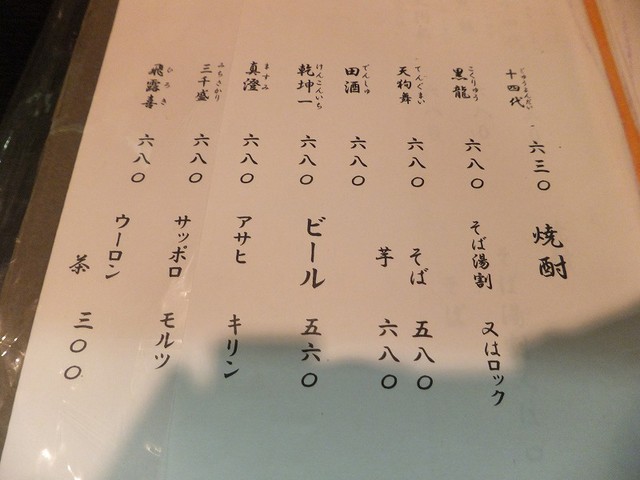 十四代 じゅうよんだい 六三〇
黒龍 こくりゅう 六八〇
天狗舞 てんぐまい 六八〇
田酒 でんしゅ 六八〇
乾坤一 けんこんいち 六八〇
真澄 ますみ 六八〇
三千盛 みちさかり 六八〇
飛露喜 ひろき 六八〇
焼酎
そば湯割 又はロック
そば 五八〇
芋 六八〇
ビール 五六〇
アサヒ キリン
サッポロ モルツ
ウーロン
茶 三〇〇